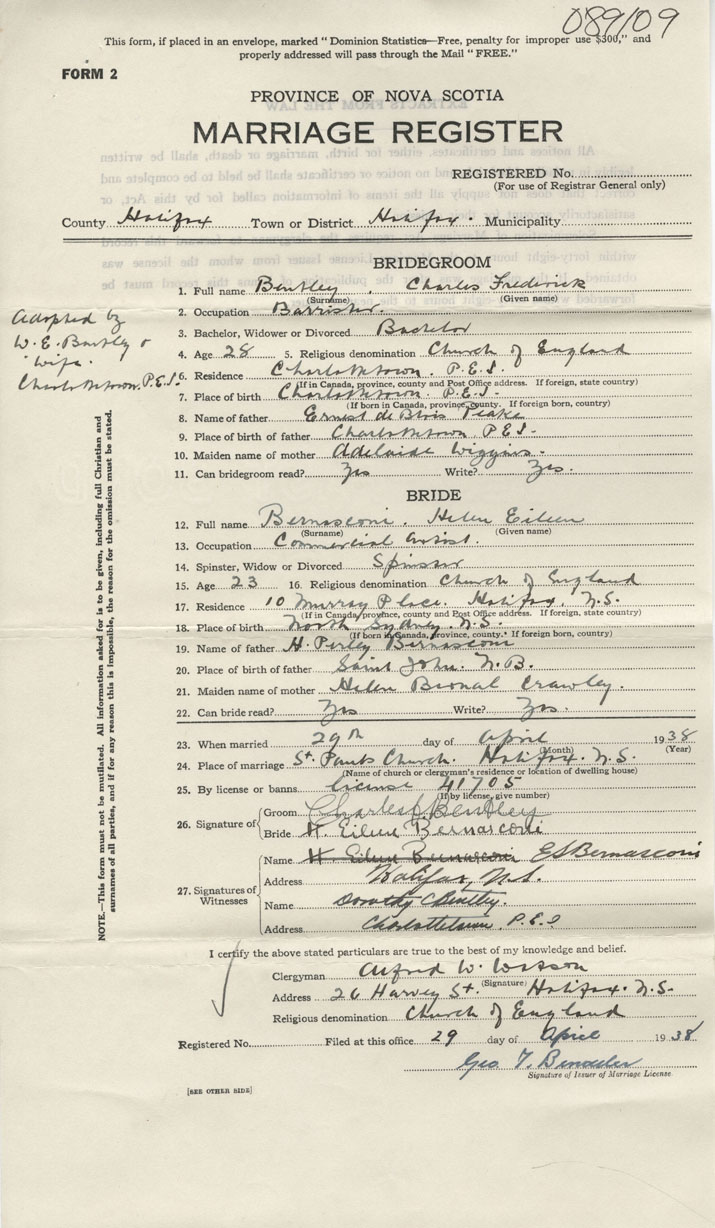 089109
This form, if placed in an envelope, marked “Dominion Statistics—Free, penalty for improper use $300,” and
properly addressed will pass through the Mail “FREE.”
FORM 2
PROVINCE OF NOVA SCOTIA
MARRIAGE REGISTER
REGISTERED No.
(For use of Registrar General only)
County Halifax Town or District Halifax. Municipality
BRIDEGROOM
1. Full name Bentley, Charles Frederick
(Surname) (Given name)
2. Occupation Barrister.
3. Bachelor, Widower or Divorced Bachelor
4. Age 28 5. Religious denomination Church of England
6. Residence Charlottetown. P.E.I.
(If in Canada, province, county and Post Office address. If foreign, state country)
7. Place of birth Charlottetown. P.E.I.
(If born in Canada, province, county. If foreign born, country)
8. Name of father Ernest de Blois Peake
9. Place of birth of father Charlottetown P.E.I.
10. Maiden name of mother Adelaide Wiggins.
11. Can bridegroom read? Yes Write? Yes.
Adopted by
W. E. Bentley &
Wife.
Charlottetown. P.E.I.
BRIDE
12. Full name Bernasconi, Helen Eileen
(Surname) (Given name)
13. Occupation Commercial Artist.
14. Spinster, Widow or Divorced Spinster
15. Age 23 16. Religious denomination Church of England
17. Residence 10 Murray Place. Halifax, N.S.
(If in Canada, province, county and Post Office address. If foreign, state country)
18. Place of birth North Sydney. N.S.
(If born in Canada, province, county. If foreign born, country)
19. Name of father H. Perley Bernasconi
20. Place of birth of father Saint John. N.B.
21. Maiden name of mother Helen Crawley.
22. Can bride read? Yes Write? Yes.
23. When married 29th day of April 1938
(Month) (Year)
24. Place of marriage St. Pauls Church. Halifax. N.S.
(Name of church or clergyman's residence or location of dwelling house)
25. By license or banns license 41705
(If by license, give number)
26. Signature of
Groom Charles F Bentley
Bride H. Eileen Bernasconi
27. Signatures of Witnesses
Name H. Eileen Bernasconi E S Bernasconi
Address Halifax, N.S.
Name Dorothy C Bentley.
Address Charlottetown, P.E.I
NOTE.—This form must not be mutilated. All information asked for is to be given, including full Christian and
surnames of all parties, and if for any reason this is impossible, the reason for the omission must be stated.
I certify the above stated particulars are true to the best of my knowledge and belief.
Clergyman Alfred W. Watson
(Signature)
Address 26 Harvey St. Halifax. N.S.
Religious denomination Church of England
Registered No. Filed at this office 29 day of April 1938
Geo T.
Signature of Issuer of Marriage License
[SEE OTHER SIDE]